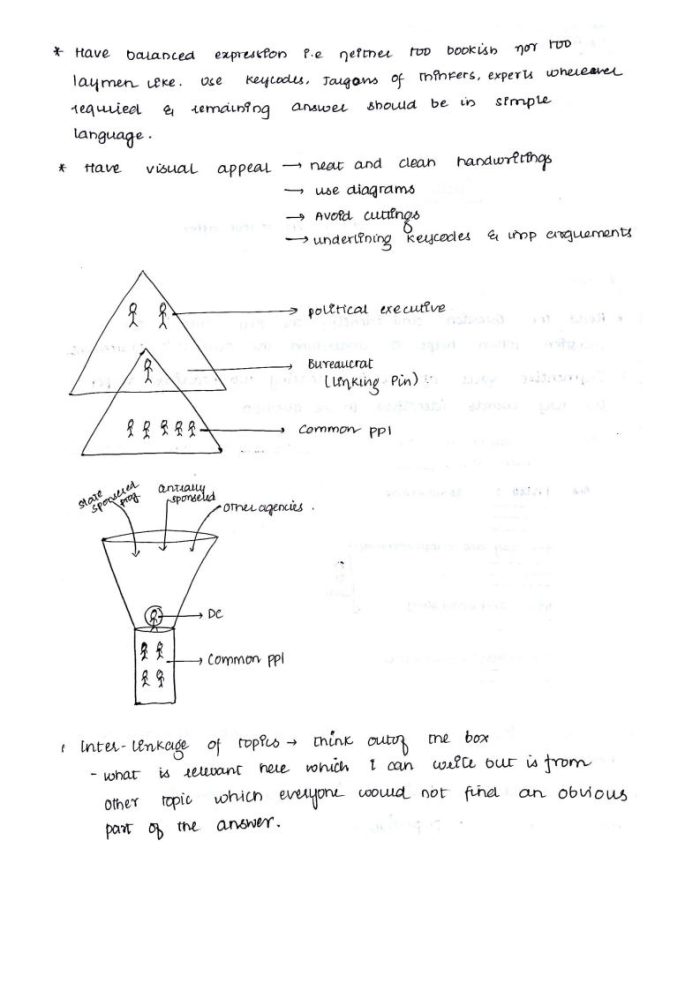 * Have balanced expression i.e neither too bookish nor too
laymen like. Use keycodes, Jargons of thinkers, experts whereever
required & remaining answer should be in simple
language.
* Have visual appeal → neat and clean handwritings
→ use diagrams
→ Avoid cuttings
→ underlining keycodes & imp arguements
→ political executive
→ Bureaucrat
(linking Pin)
→ Common ppl
state sponsered prog
sponsered
other agencies.
→ DC
→ Common ppl
Inter-linkage of topics → think out of the box
- what is relevant here which I can write but is from
other topic which everyone would not find an obvious
part of the answer.